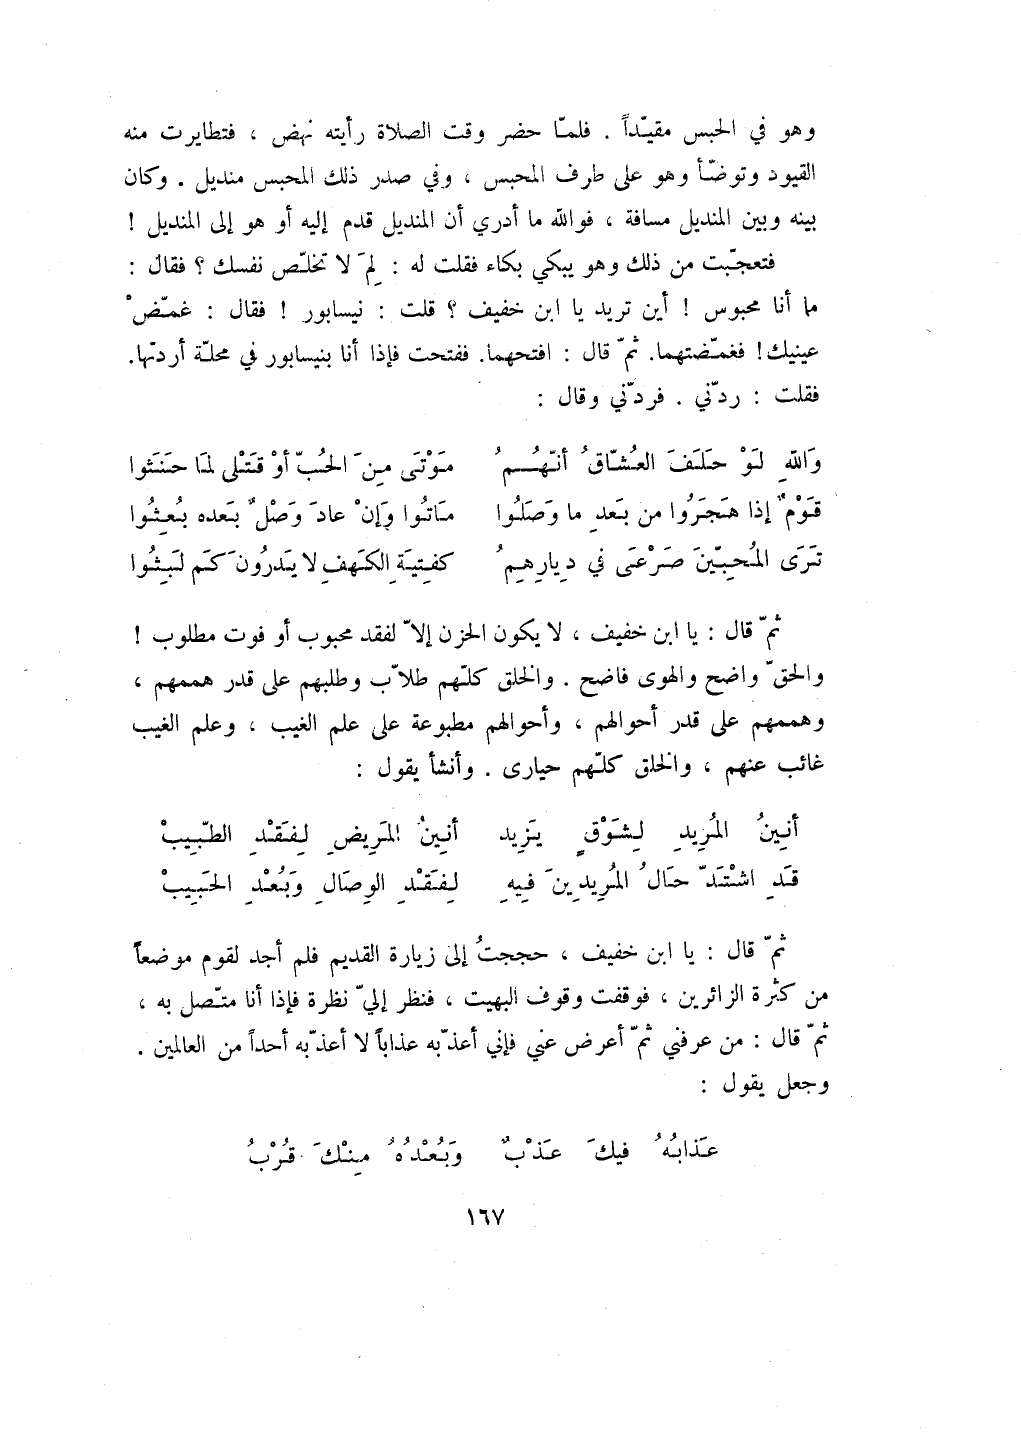 وهو في الحبس مقيّداً . فلمّا حضر وقت الصلاة رأيته نهض ، فتطايرت منه
القيود وتوضّأ وهو على طرف المحبس ، وفي صدر ذلك المحبس منديل . وكان
بينه وبين المنديل مسافة ، فوالله ما أدري أن المنديل قدم إليه أو هو إلى المنديل !
فتعجّبت من ذلك وهو يبكي بكاء فقلت له : لِمَ لا تخلّص نفسك ؟ فقال :
ما أنا محبوس ! أين تريد يا ابن خفيف ؟ قلت : نيسابور ! فقال : غمّضْ
عينيك! فغمّضتهما. ثمّ قال : افتحهما. ففتحت فإذا أنا بنيسابور في محلّة أردتها.
فقلت : ردّني . فردّني وقال :
وَاللهِ لَوْ حَلَفَ العُشّاقُ أنّهُمُ مَوْتَى مِنَ الحُبّ أوْ قَتْلى لمَا حَنَثوا
قَوْمٌ إذا هَجَرُوا من بَعدِ ما وَصَلُوا مَاتُوا وَإنْ عادَ وَصْلٌ بَعده بُعِثُوا
تَرَى المُحبّينَ صَرْعَى في دِيارِهِمُ كفِتيَةِ الكَهفِ لا يَدرُونَ كَم لَبِثُوا
ثمّ قال : يا ابن خفيف ، لا يكون الحزن إلاّ لفقد محبوب أو فوت مطلوب !
والحقّ واضح والهوى فاضح . والخلق كلّهم طلاّب وطلبهم على قدر هممهم ،
وهممهم على قدر أحوالهم ، وأحوالهم مطبوعة على علم الغيب ، وعلم الغيب
غائب عنهم ، والخلق كلّهم حيارى . وأنشأ يقول :
أنِينُ المُرِيدِ لِشَوْقٍ يَزِيد أنِينُ المَرِيضِ لِفَقْدِ الطّبِيبْ
قَدِ اشْتَدّ حَالُ المُرِيدِينَ فِيهِ لِفَقْدِ الوِصَالِ وَبُعْدِ الحَبِيبْ
ثمّ قال : يا ابن خفيف ، حججتُ إلى زيارة القديم فلم أجد لقوم موضعاً
من كثرة الزائرين ، فوقفت وقوف البهيت ، فنظر إليّ نظرة فإذا أنا متّصل به ،
ثمّ قال : من عرفني ثمّ أعرض عني فإني أعذّبه عذاباً لا أعذّبه أحداً من العالمين .
وجعل يقول :
عَذابُهُ فيكَ عَذْبٌ وَبُعْدُهُ مِنْكَ قُرْبُ
١٦٧